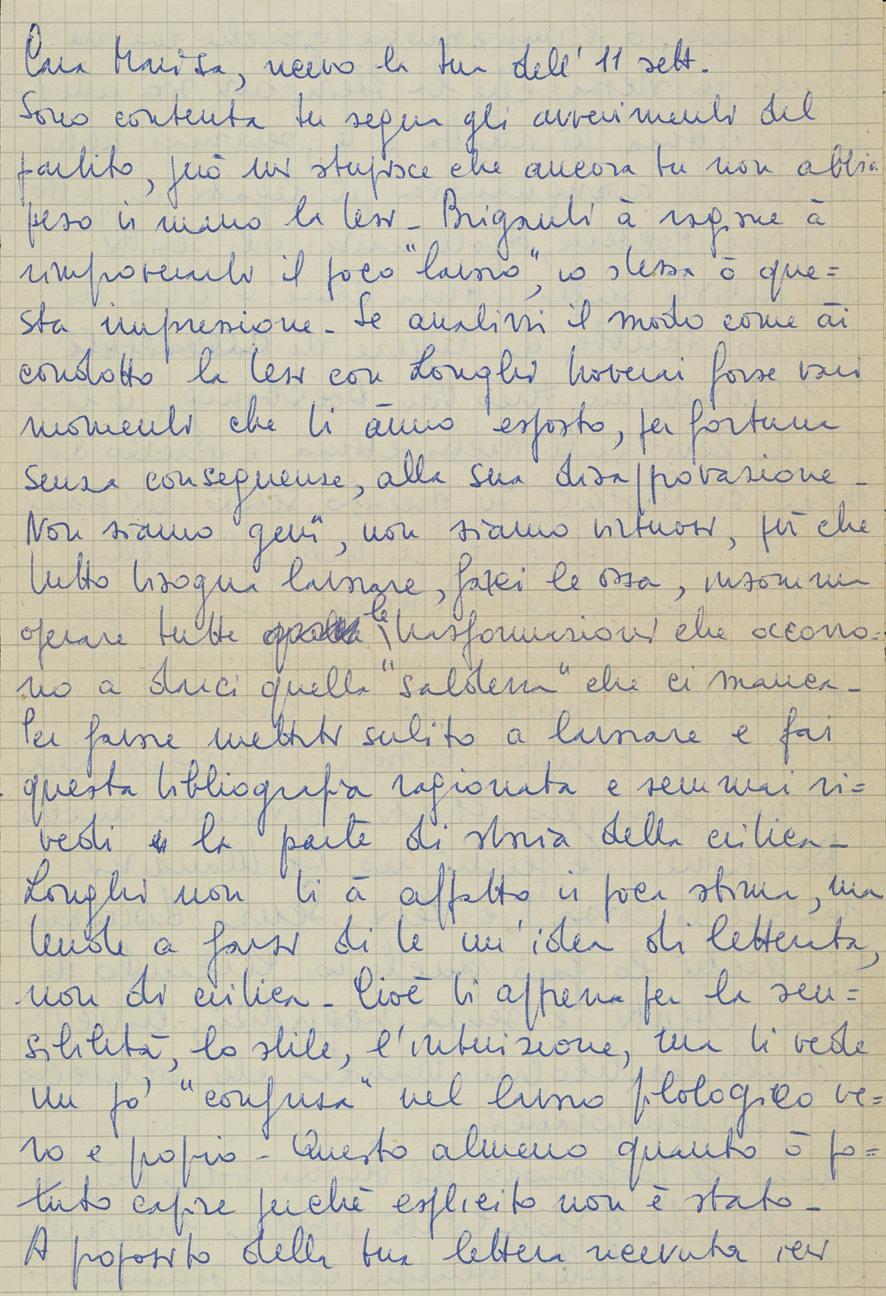 Cara Marisa, ricevo la tua dell' 11 sett.
Sono contenta tu segua gli avvenimenti del
partito, però mi stupisce che ancora tu non abbia
preso in mano la tesi - Briganti à ragione à
rimproverarti il poco "lavoro", io stessa ò que=
sta impressione - Se analizzi il modo come ài
condotto la tesi con Longhi troverai forse vari
momenti che ti ànno esposto, per fortuna
senza conseguenze, alla sua disapprovazione -
Non siamo genî, non siamo virtuosi, più che
tutto bisogna lavorare, farci le ossa, insomma
operare tutte le trasformazioni che occorro=
no a darci quella "saldezza" che ci manca -
Per favore mettiti subito a lavorare e fai
questa bibliografia ragionata e semmai ri=
vedi la parte di storia della critica -
Longhi non ti à affatto in poca stima, ma
tende a farsi di te un'idea di letterata,
non di critica - Cioè ti apprezza per la sen=
sibilità, lo stile, l'intuizione, ma ti vede
un po' "confusa" nel lavoro filologico ve=
ro e propio - Questo almeno quanto ò po=
tuto capire perchè esplicito non è stato -
A proposito della tua lettera ricevuta ieri